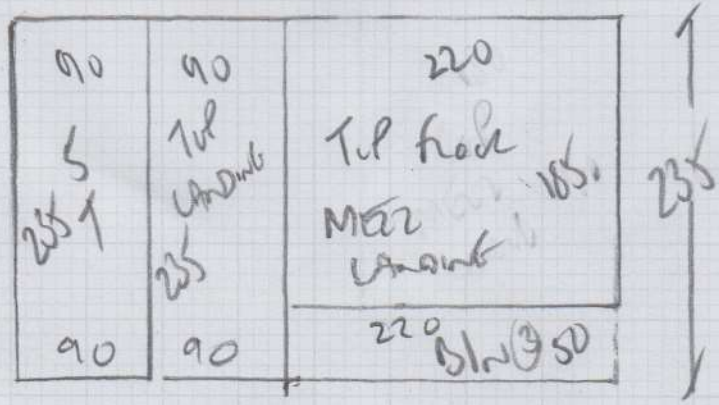 90
5
235 ↑
90
90
TOP
LANDING
235
90
220
TOP FLOOR
185
MEZZ
LANDING
220
BIN @ 50
235